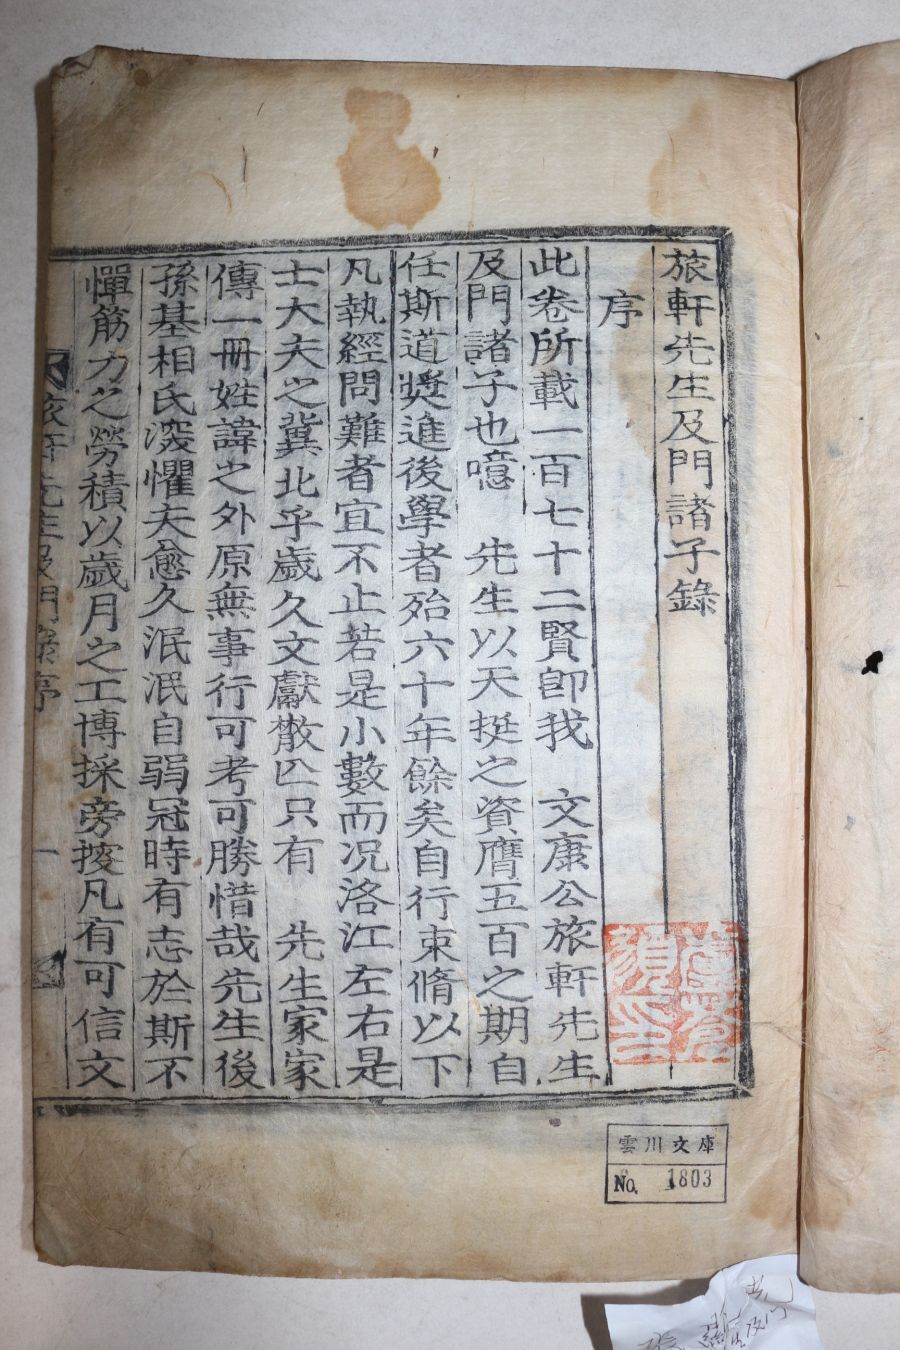 旅軒先生及門諸子錄
序
此卷所載一百七十二賢卽我 文康公旅軒先生
及門諸子也噫 先生以天挺之資膺五百之期自
任斯道奬進後學者殆六十年餘矣自行束脩以下
凡執經問難者宜不止若是小數而况洛江左右是
士大夫之冀北乎歲久文獻散亾只有 先生家家
傳一冊姓諱之外原無事行可考可勝惜哉先生後
孫基相氏深懼夫愈久泯泯自弱冠時有志於斯不
憚筋力之勞積以歲月之工博採旁搜凡有可信文
旅軒先生及門錄序
一
雲川文庫
No. 1803